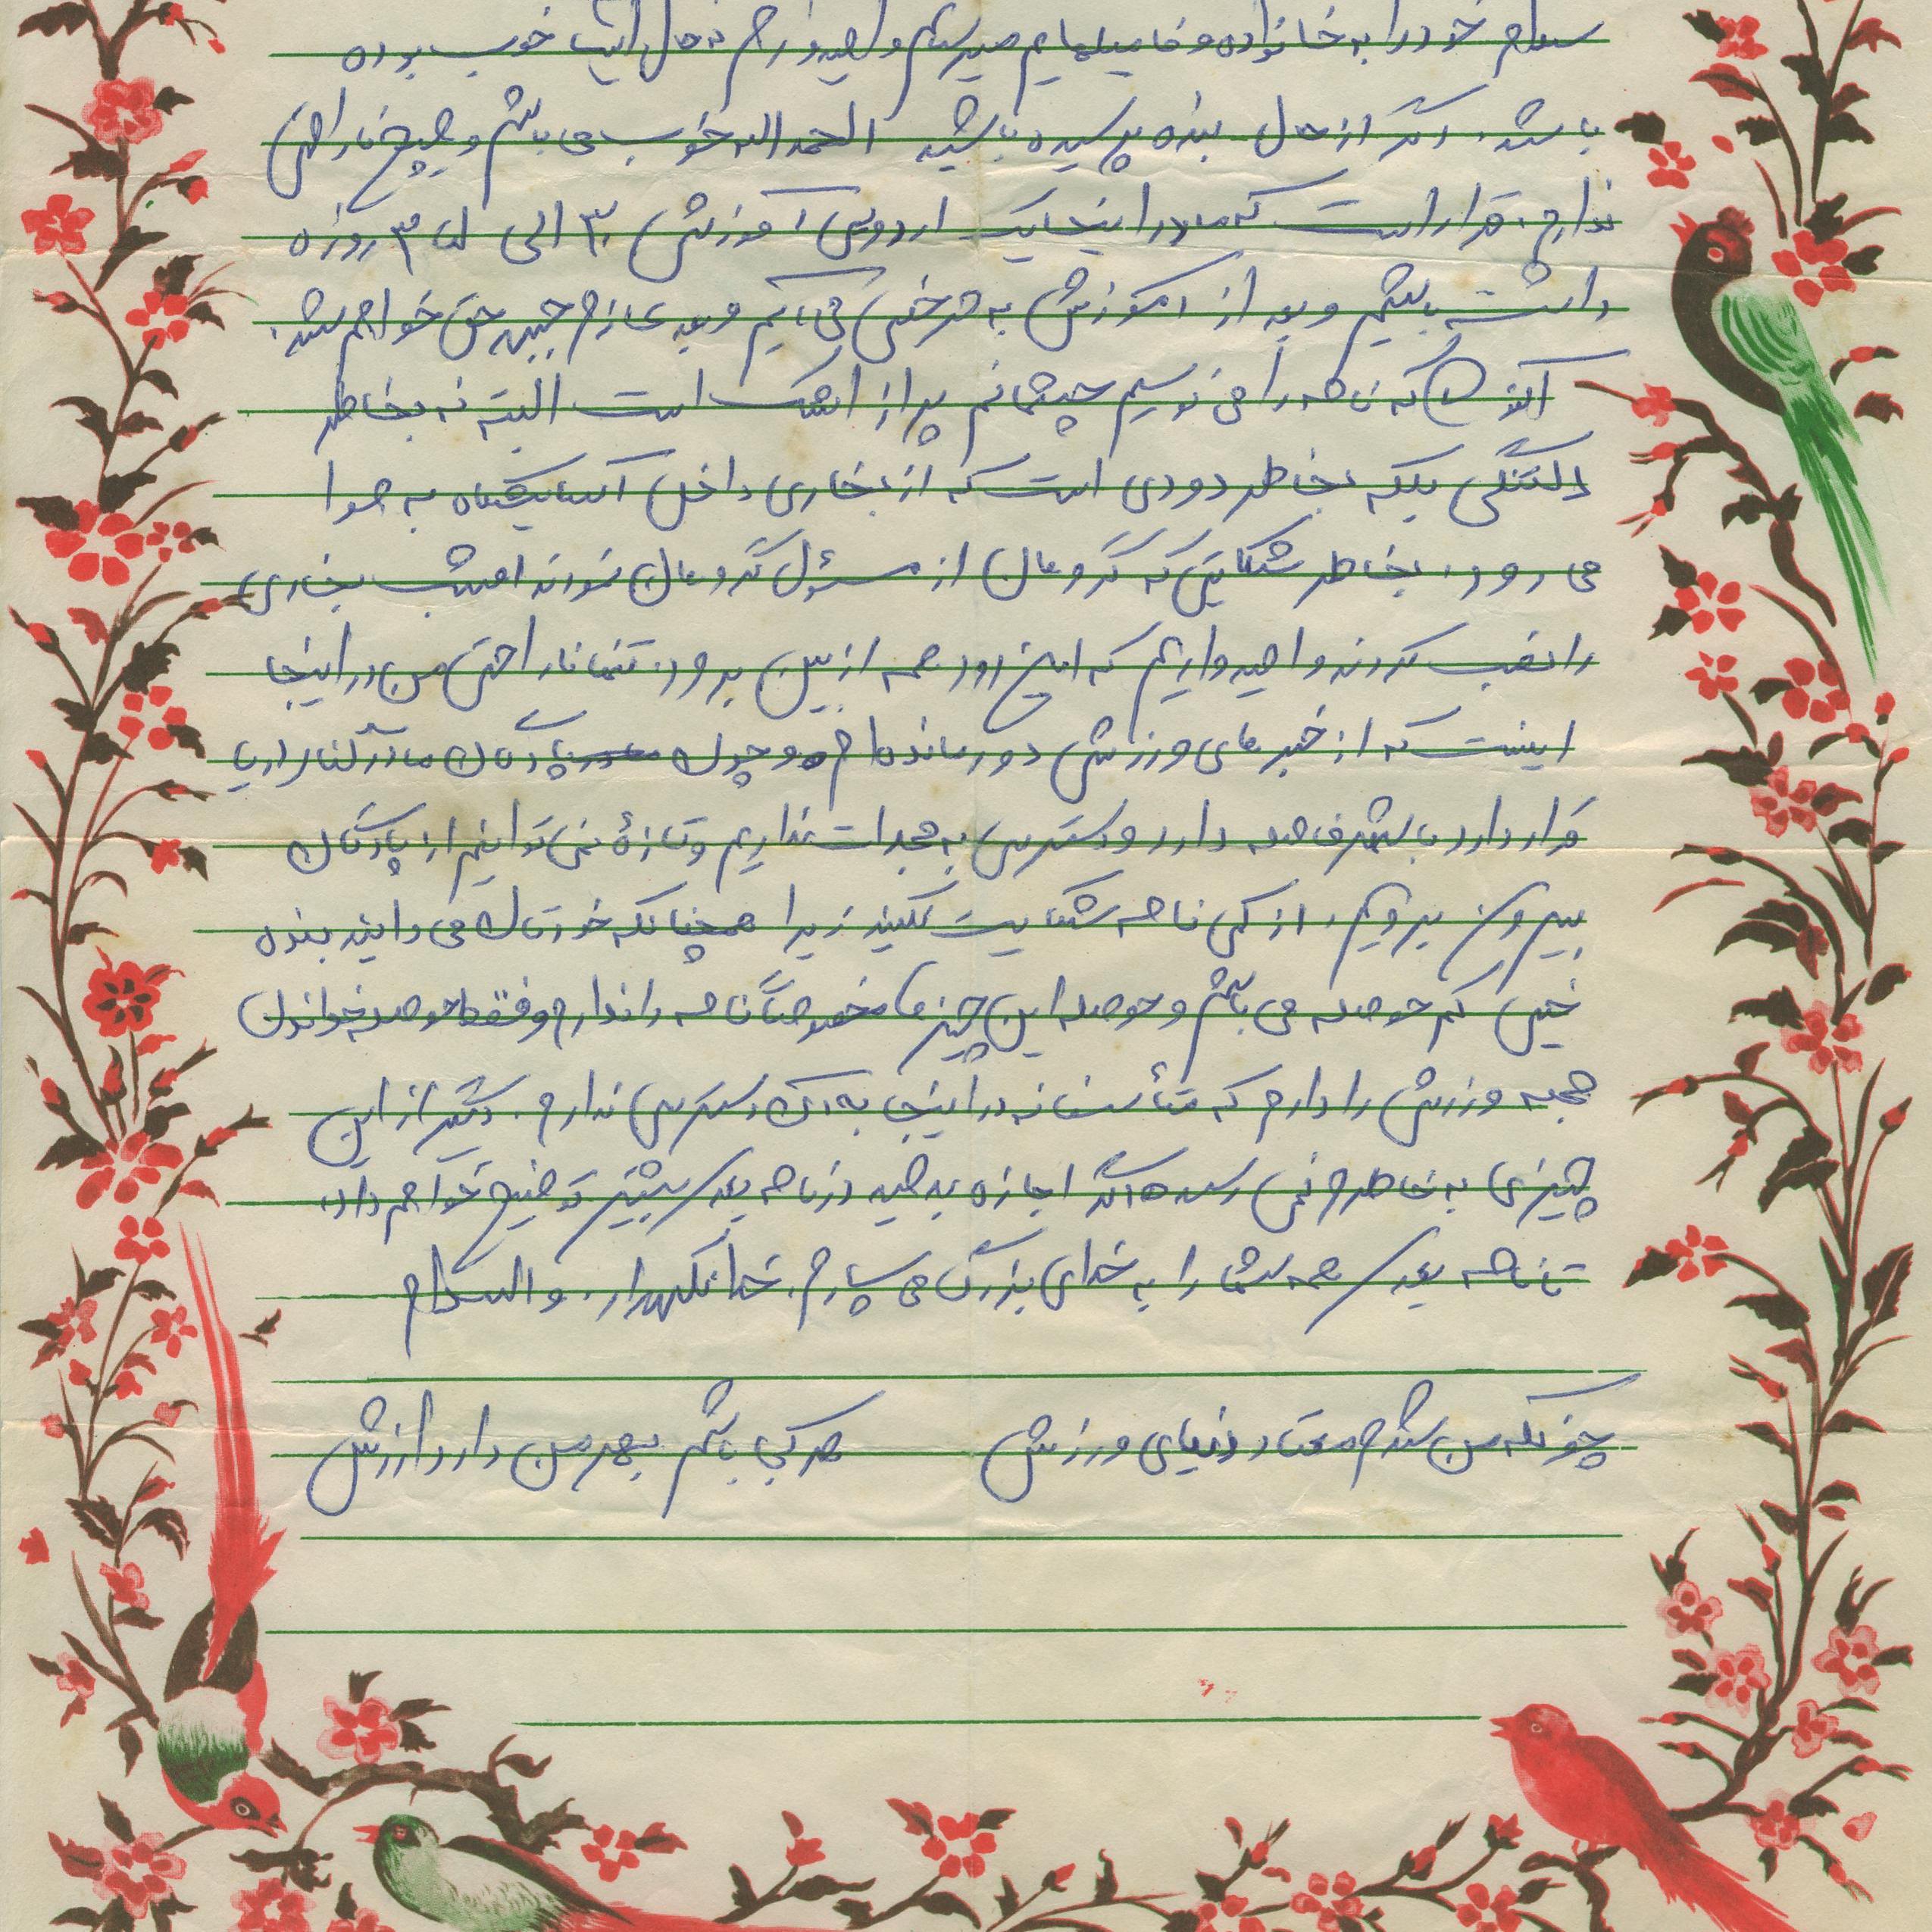 سلام خود را به خانواده و فامیلهایم میرسانم و امیدوارم که حال ایشان خوب بوده
باشد. اگر از حال بنده پرسیده باشید الحمدالله خوب می باشم و هیچ ناراحتی
ندارم. قرار است که ما در اینجا یک اردوی آموزشی ۳۰ الی ۳۵ روزه
داشته باشیم و بعد از آموزش به مرخصی می آیم و بعد عازم جبهه حق خواهم شد.
اکنون که نامه را می نویسم چشمانم پر از اشک است البته نه بخاطر
دلتنگی بلکه بخاطر دودی است که از بخاری داخل آسایشگاه به هوا
می رود. بخاطر شکایتی که گروهان از مسئول گروهان نمودند امشب بخاری
را نصب کردند و امیدواریم که این دود همه از بین برود. تنها ناراحتی من در اینجا
اینست که از خبرهای ورزشی دور مانده ام و چون پادگان ما در کنار دریا
قرار دارد با شهر فاصله دارد و دسترسی به مجلات نداریم و تازه نمی توانیم از پادگان
بیرون برویم. از کمی نامه شکایت نکنید زیرا همچنانکه خودتان می دانید بنده
خیلی کم حوصله می باشم و حوصله این چیزها مخصوصاً نامه را ندارم و فقط حوصله خواندن
مجله ورزشی را دارم که متأسفانه در اینجا به آن دسترسی ندارم. دیگر از این
چیزی به خاطرم نمی رسد اگر اجازه بدهید در نامه بعد بیشتر توضیح خواهم داد.
تا نامه بعد همه شما را به خدای بزرگ می سپارم. خدانگهدار. والسلام
چونکه من شدم معتاد دنیای ورزش هر کجا باشم بهر من دارد ارزش